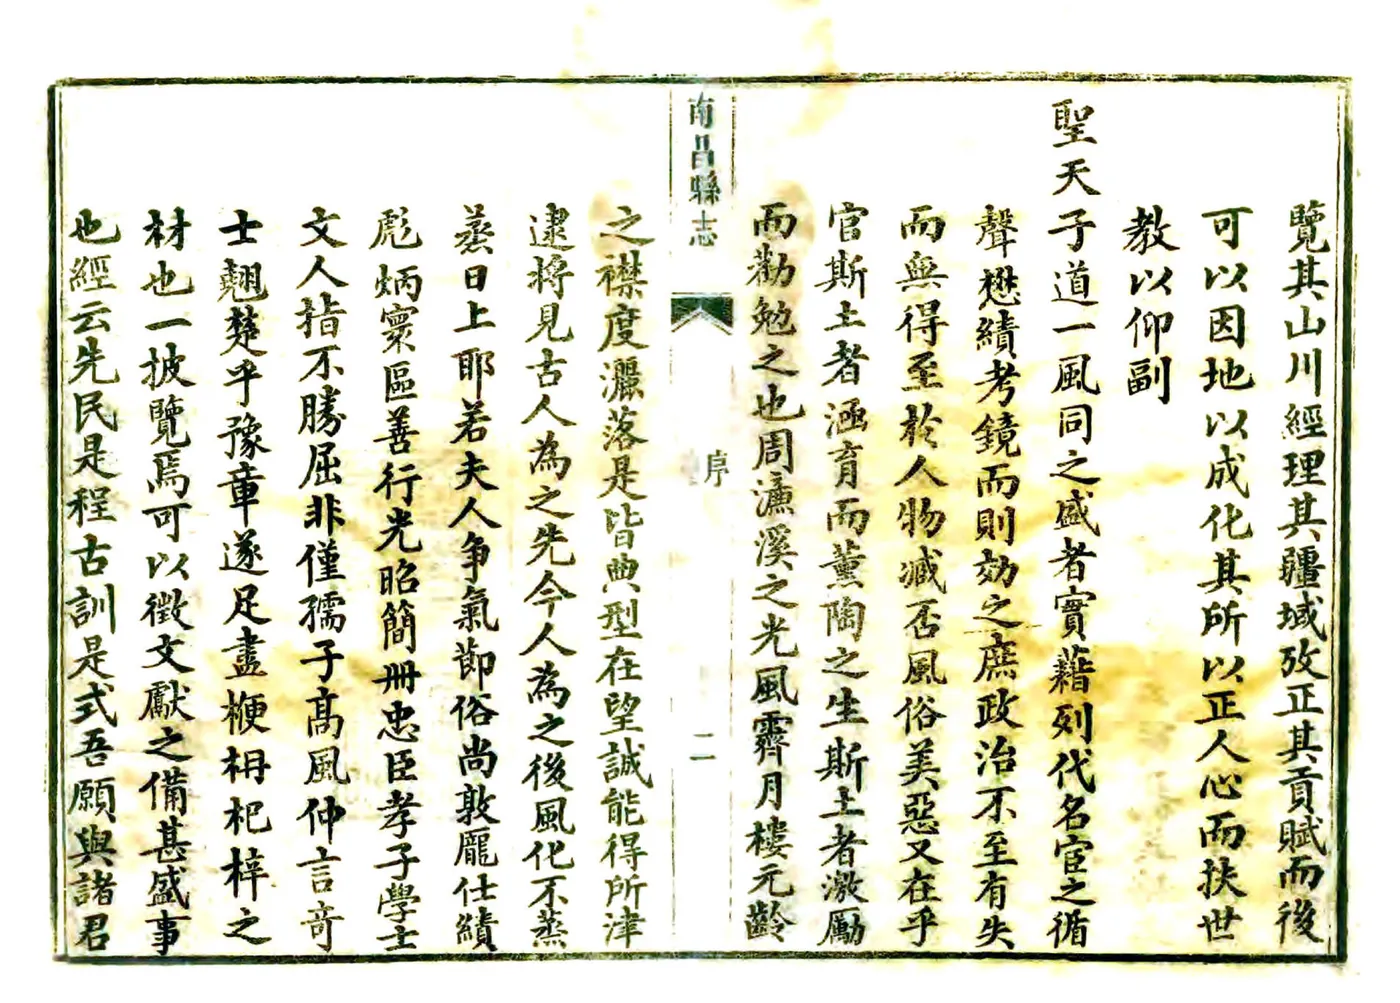 覽其山川經理其疆域攷正其貢賦而後
可以因地以成化其所以正人心而扶世
教以仰副
聖天子道一風同之盛者實藉列代名宦之循
聲懋績考鏡而則效之庶政治不至有失
而無得至於人物臧否風俗美惡又在乎
官斯土者涵育而薰陶之生斯土者激勵
而勸勉之也周濂溪之光風霽月樓元齡
南昌縣志
序
二
之襟度灑落是皆典型在望誠能得所津
逮將見古人為之先今人為之後風化不蒸
蒸日上耶若夫人爭氣節俗尚敦龐仕績
彪炳寰區善行光昭簡冊忠臣孝子學士
文人指不勝屈非僅孺子高風仲言奇
士翹楚乎豫章遂足盡楩枏杞梓之
材也一披覽焉可以徵文獻之備甚盛事
也經云先民是程古訓是式吾願與諸君